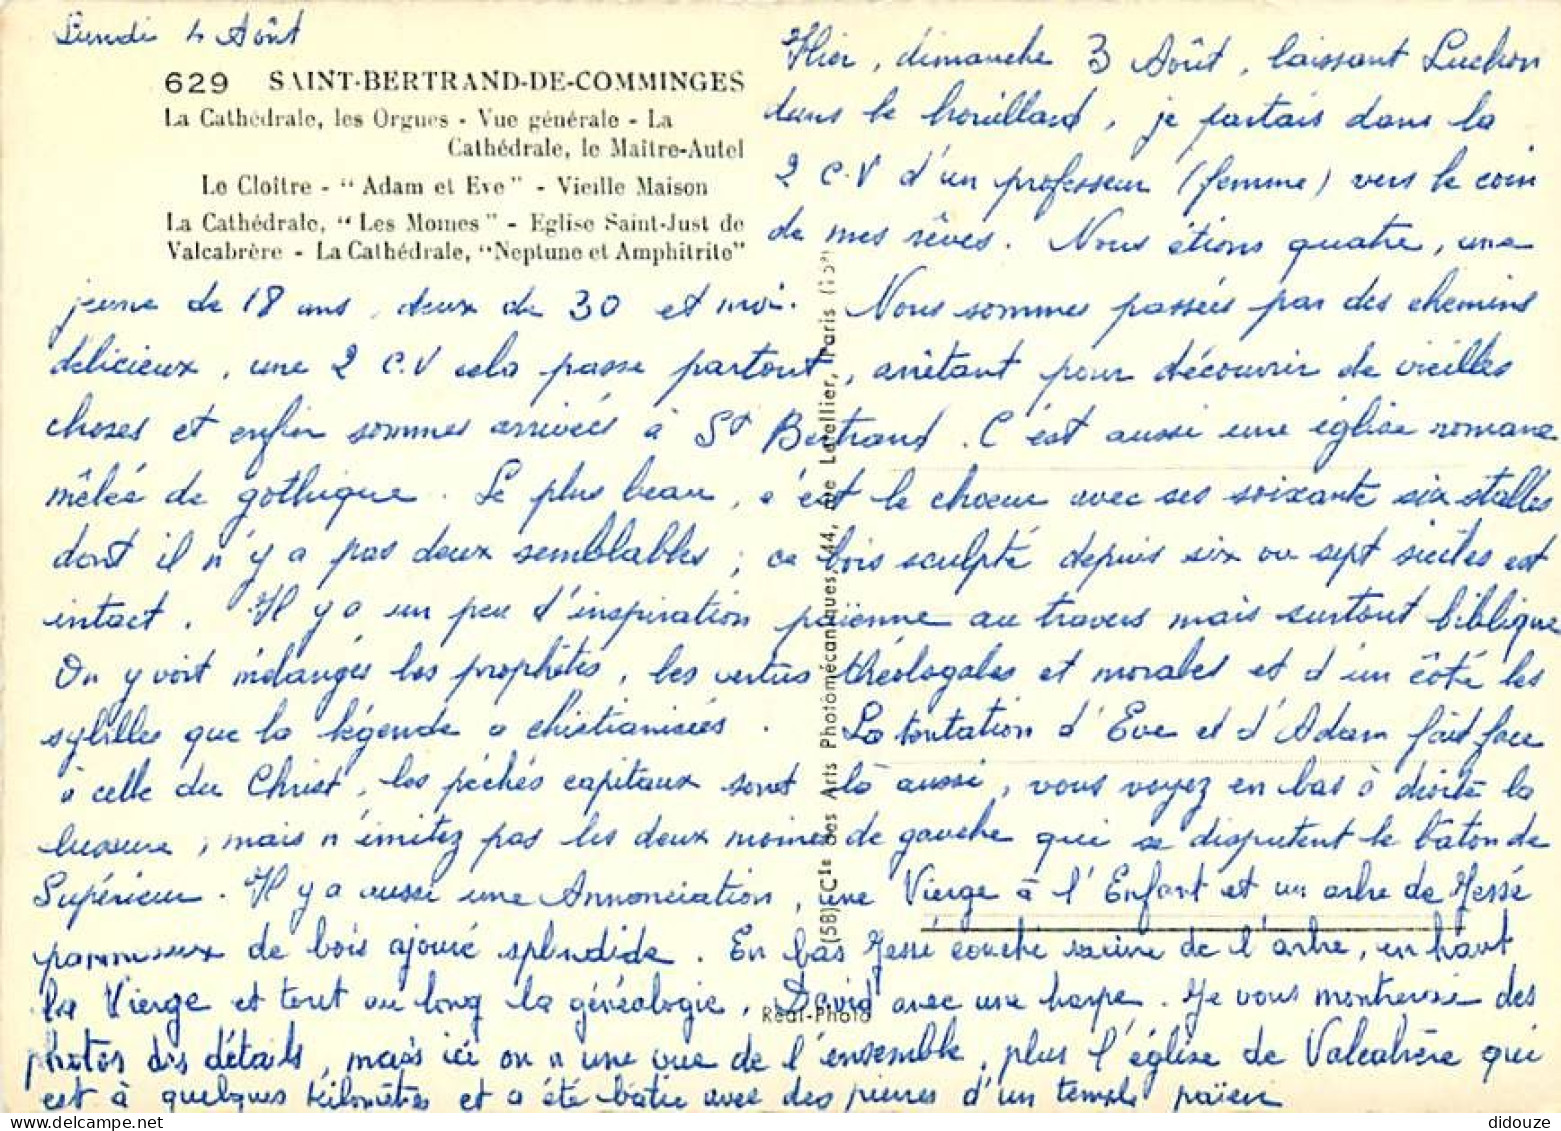 Lundi 4 Août
629 SAINT-BERTRAND-DE-COMMINGES
La Cathédrale, les Orgues - Vue générale - La
Cathédrale, le Maître-Autel
Le Cloître - "Adam et Eve" - Vieille Maison
La Cathédrale, "Les Moines" - Eglise Saint-Just de
Valcabrère - La Cathédrale, "Neptune et Amphitrite"
Hier, dimanche 3 Août, laissant Luchon
dans le brouillard, je partais dans la
2 C.V d'un professeur (femme) vers le coin
de mes rêves. Nous étions quatre, une
jeune de 18 ans, deux de 30 et moi. Nous sommes passées par des chemins
délicieux, une 2 C.V cela passe partout, arrêtant pour découvrir de vieilles
choses et enfin sommes arrivées à St Bertrand. C'est aussi une église romane
mêlée de gothique. Le plus beau, c'est le chœur avec ses soixante six stalles
dont il n'y a pas deux semblables; ce bois sculpté depuis six ou sept siècles est
intact. Il y a un peu d'inspiration païenne au travers mais surtout biblique
On y voit mélangés les prophètes, les vertus théologales et morales et d'un côté les
sybilles que la légende a christianisées. La tentation d'Eve et d'Adam fait face
à celle du Christ, les péchés capitaux sont là aussi, vous voyez en bas à droite la
luxure, mais n'imitez pas les deux moines de gauche qui se disputent le bâton de
Supérieur. Il y a aussi une Annonciation, une Vierge à l'Enfant et un arbre de Jessé
panneaux de bois ajouré splendide. En bas Jessé couché racine de l'arbre, en haut
la Vierge et tout au long la généalogie, David avec une harpe. Je vous montrerai des
photos des détails, mais ici on a une vue de l'ensemble, plus l'église de Valcabrère qui
est à quelques kilomètres et a été bâtie avec des pierres d'un temple païen
(58) Cie des Arts Photomécaniques, 44, rue Letellier, Paris
Réal-Photo
didouze